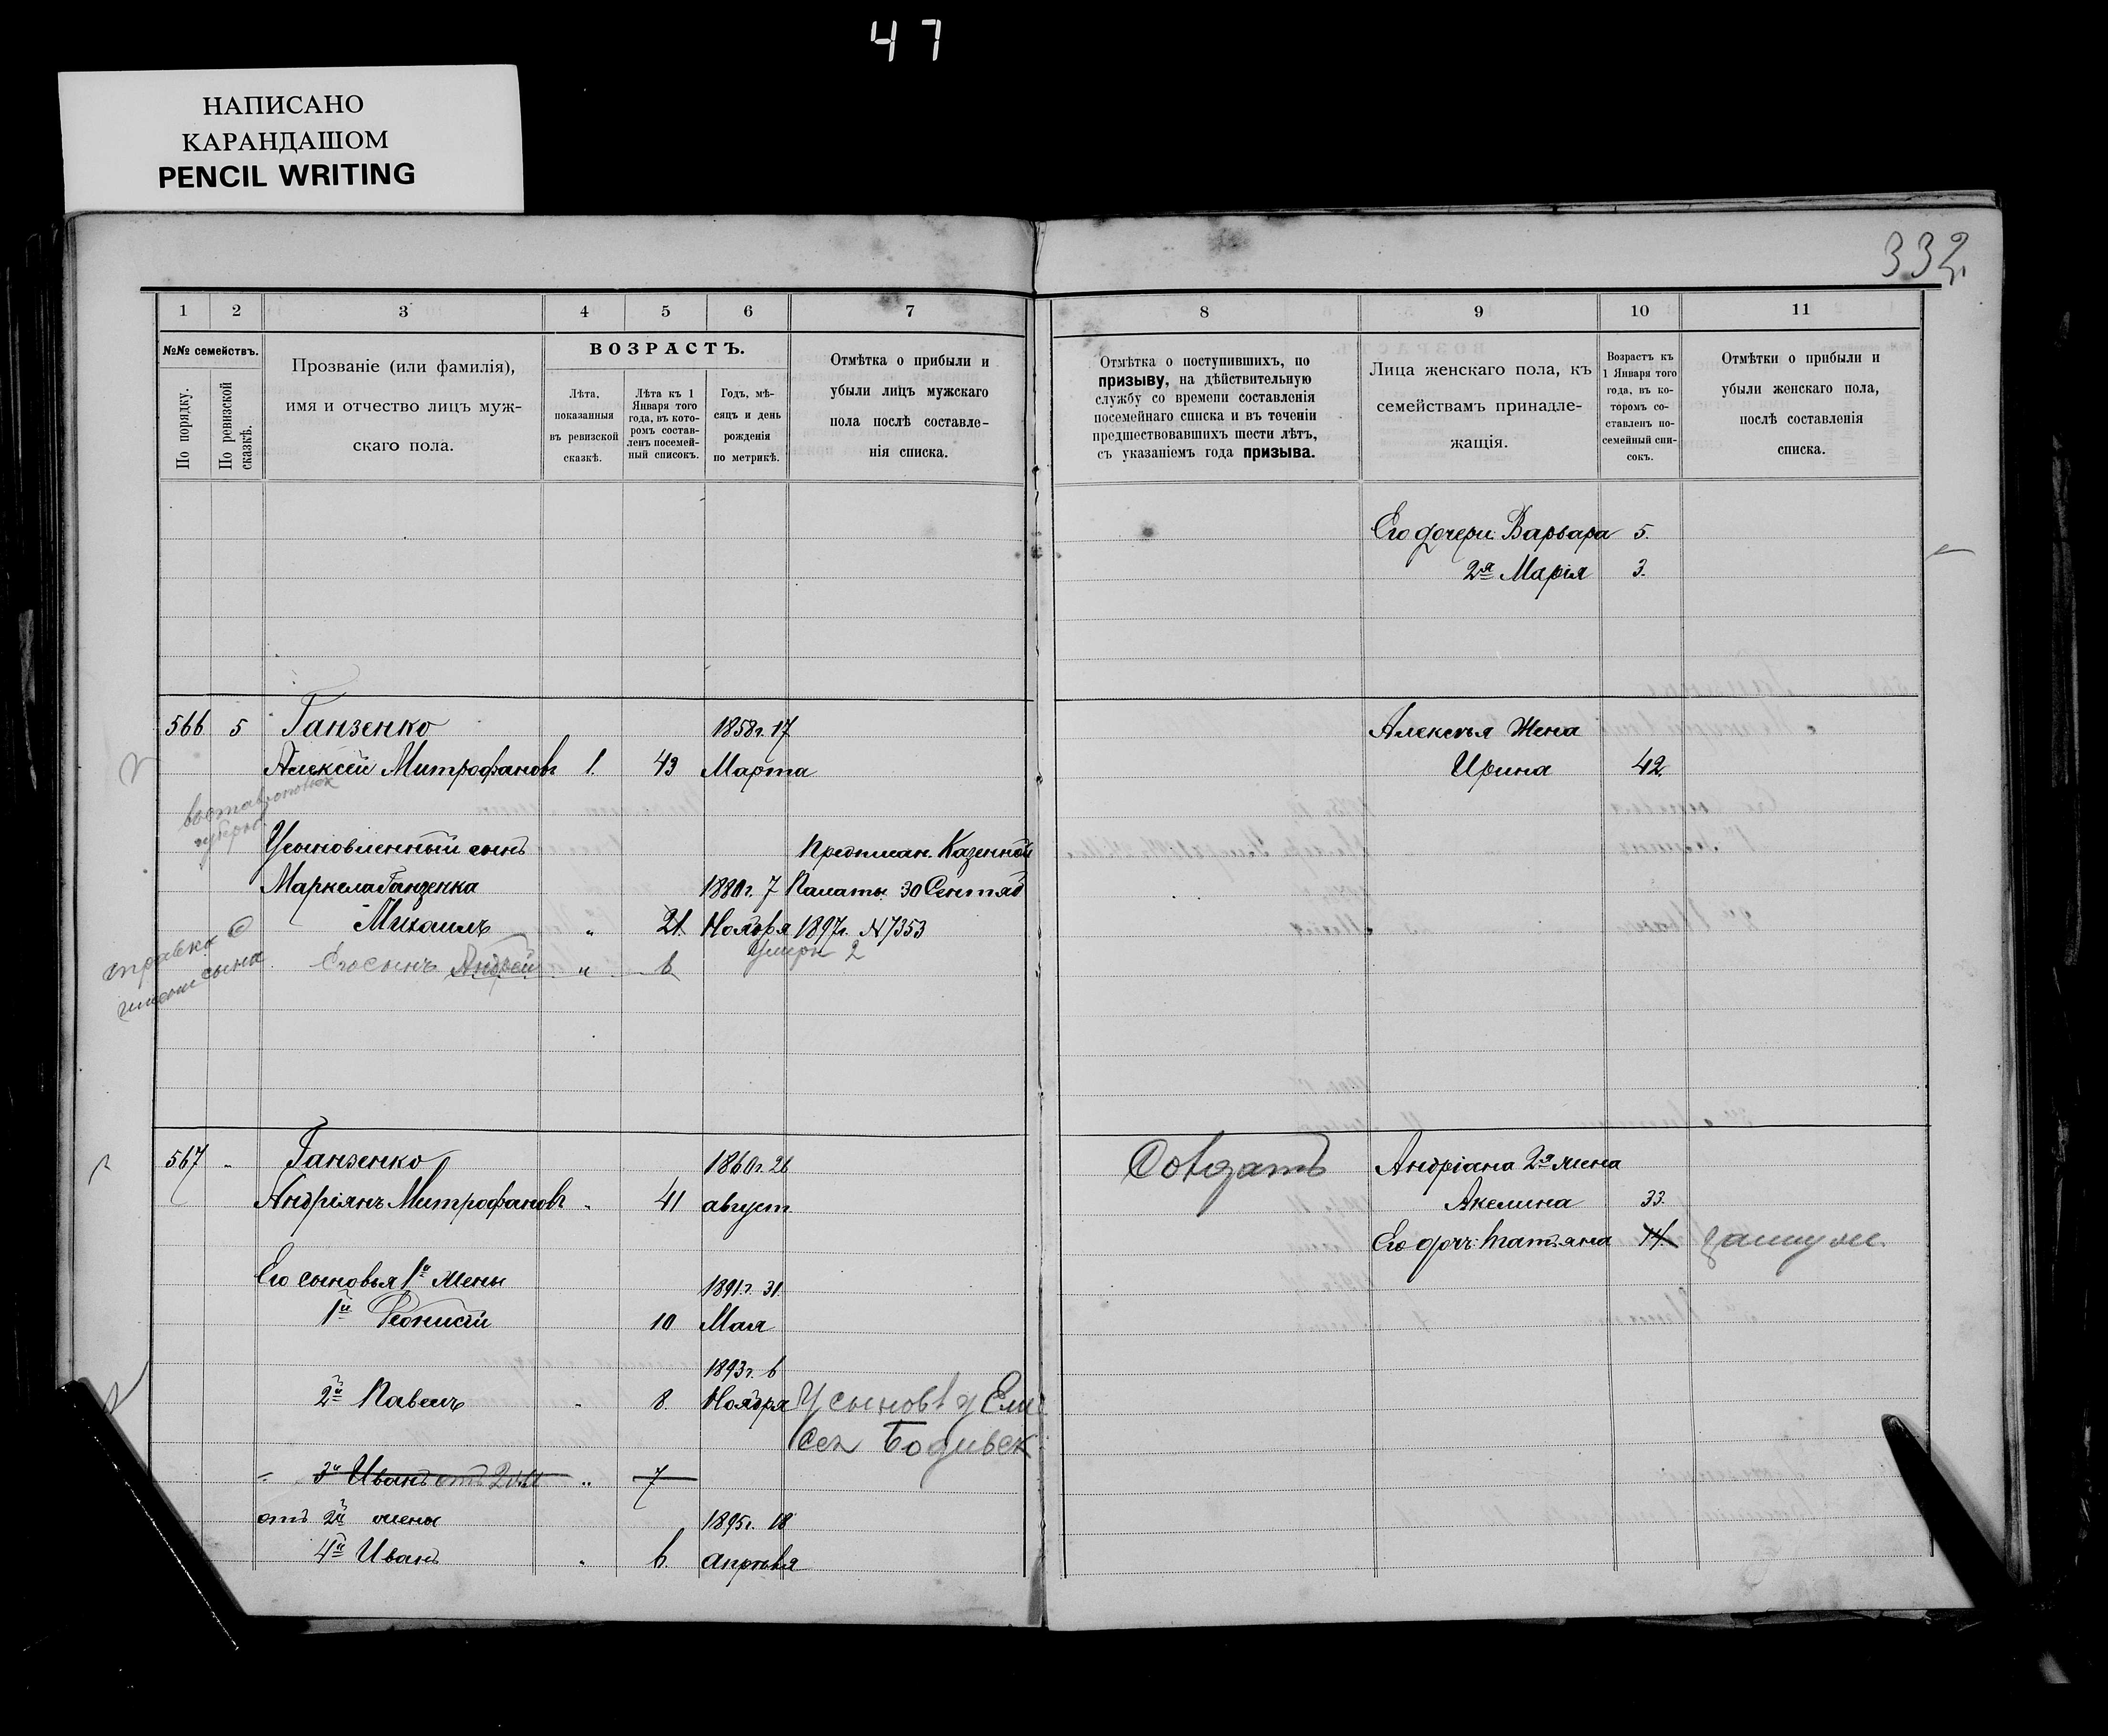 47
НАПИСАНО
КАРАНДАШОМ
PENCIL WRITING
332.
1 2 3 4 5 6 7
№№ семействъ.
По порядку.
По ревизской сказкѣ.
Прозваніе (или фамилія),
имя и отчество лицъ муж-
скаго пола.
ВОЗРАСТЪ.
Лѣта,
показанныя
въ ревизской
сказкѣ.
Лѣта къ 1
Января того
года, въ кото-
ромъ состав-
ленъ посемей-
ный списокъ.
Годъ, мѣ-
сяцъ и день
рожденія
по метрикѣ.
Отмѣтка о прибыли и
убыли лицъ мужскаго
пола послѣ составле-
нія списка.
8 9 10 11
Отмѣтка о поступившихъ, по
призыву, на дѣйствительную
службу со времени составленія
посемейнаго списка и въ теченіи
предшествовавшихъ шести лѣтъ,
съ указаніемъ года призыва.
Лица женскаго пола, къ
семействамъ принадле-
жащія.
Возрастъ къ
1 Января того
года, въ ко-
торомъ со-
ставленъ по-
семейный спи-
сокъ.
Отмѣтки о прибыли и
убыли женскаго пола,
послѣ составленія
списка.
Его дочери: Варвара 5.
2я Марія 3.
566 5 Ганзенко 1858г. 17
Алексѣй Митрофановъ 1. 43 Марта
Алексѣя Жена
Ирина 42.
Усыновленный сынъ Предписан. Казенной
Маркела Ганзенка 1880г. 7 Палаты 30 Сентяб
Михаилъ " 21. Ноября 1897г. № 7353
умеръ
Его сынъ Андрей " 6
справка о
имени сына
567 " Ганзенко 1860г. 26
Андріянъ Митрофановъ " 41 август
Солдатъ
Андріана 2я жена
Акелина 33.
Его дочь: Татьяна 14.
Его сыновья 1й жены 1891г. 31.
1й Феонистъ 10 Мая
1893г. 6
2й Павелъ " 8. Ноября
3й Иванъ отъ 2й " 7
отъ 2й жены 1895г. 18
4й Иванъ " 6. апрѣля